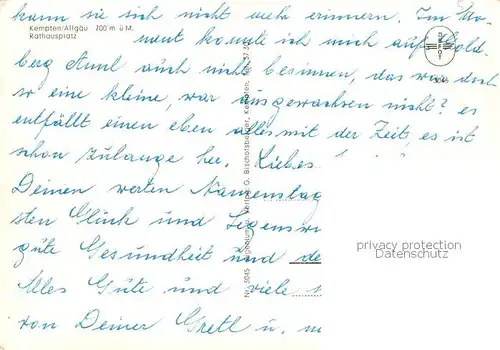 kann sie sich nicht mehr erinnern. Im Mo-
Kempten/Allgäu 700 m ü M.
Rathausplatz
ment konnte ich mich auf Gold-
berg Annl auch nicht besinnen, das war doch
so eine kleine, war ausgewachsen nicht? es
entfällt einen eben alles mit der Zeit, es ist
schon zulange her. Liebes
Deinen werten Namenstag
sten Glück und Segenswü
gute Gesundheit und de
Alles Gute und viele
von Deiner Gretl u. m
Verlag G. Bischofsberger, Kempten,
Nr. 5045
privacy protection
Datenschutz